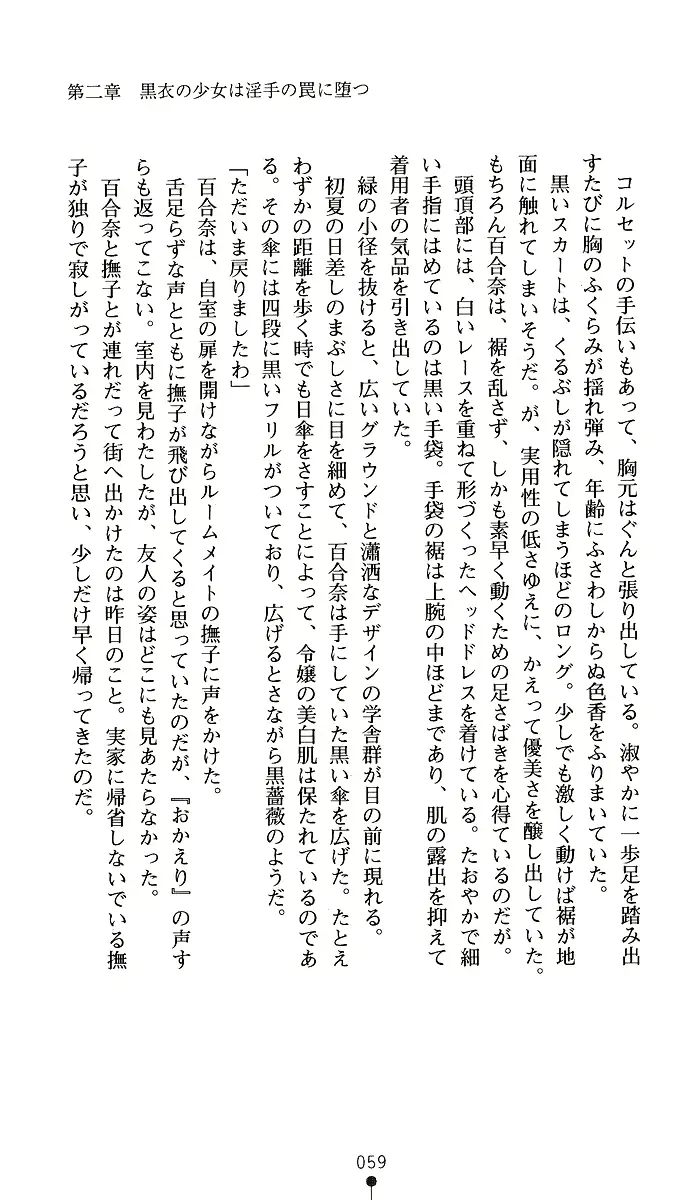 第二章　黒衣の少女は淫手の罠に堕つ
コルセットの手伝いもあって、胸元はぐんと張り出している。淑やかに一歩足を踏み出
すたびに胸のふくらみが揺れ弾み、年齢にふさわしからぬ色香をふりまいていた。
黒いスカートは、くるぶしが隠れてしまうほどのロング。少しでも激しく動けば裾が地
面に触れてしまいそうだ。が、実用性の低さゆえに、かえって優美さを醸し出していた。
もちろん百合奈は、裾を乱さず、しかも素早く動くための足さばきを心得ているのだが。
頭頂部には、白いレースを重ねて形づくったヘッドドレスを着けている。たおやかで細
い手指にはめているのは黒い手袋。手袋の裾は上腕の中ほどまであり、肌の露出を抑えて
着用者の気品を引き出していた。
緑の小径を抜けると、広いグラウンドと瀟洒なデザインの学舎群が目の前に現れる。
初夏の日差しのまぶしさに目を細めて、百合奈は手にしていた黒い傘を広げた。たとえ
わずかの距離を歩く時でも日傘をさすことによって、令嬢の美白肌は保たれているのであ
る。その傘には四段に黒いフリルがついており、広げるとさながら黒薔薇のようだ。
「ただいま戻りましたわ」
百合奈は、自室の扉を開けながらルームメイトの撫子に声をかけた。
舌足らずな声とともに撫子が飛び出してくると思っていたのだが、『おかえり』の声す
らも返ってこない。室内を見わたしたが、友人の姿はどこにも見あたらなかった。
百合奈と撫子とが連れだって街へ出かけたのは昨日のこと。実家に帰省しないでいる撫
子が独りで寂しがっているだろうと思い、少しだけ早く帰ってきたのだ。
059